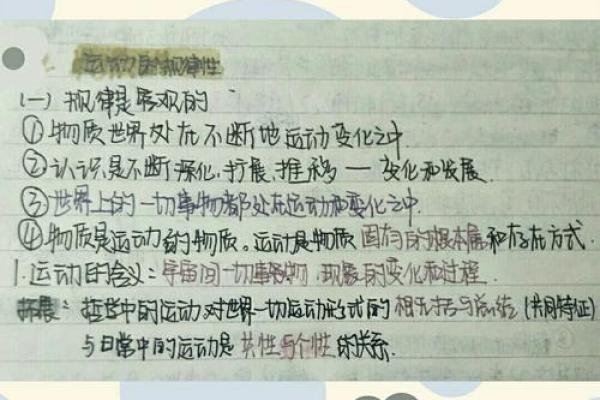 运动的规律性
(一) 规律是客观的
①物质世界处在不断地运动变化之中.
②认识是不断深化、扩展、推移 — 变化和发展.
③世界上的一切事物都处在运动和变化之中.
④物质是运动的物质。运动是物质固有的根本属和存在方式.
1.运动的含义：宇宙间一切事物、现象的变化和过程.
拓展：哲学中的运动对世界一切运动形式的概括与总结 (共同特征)
与日常中的运动是共性与个性的关系.